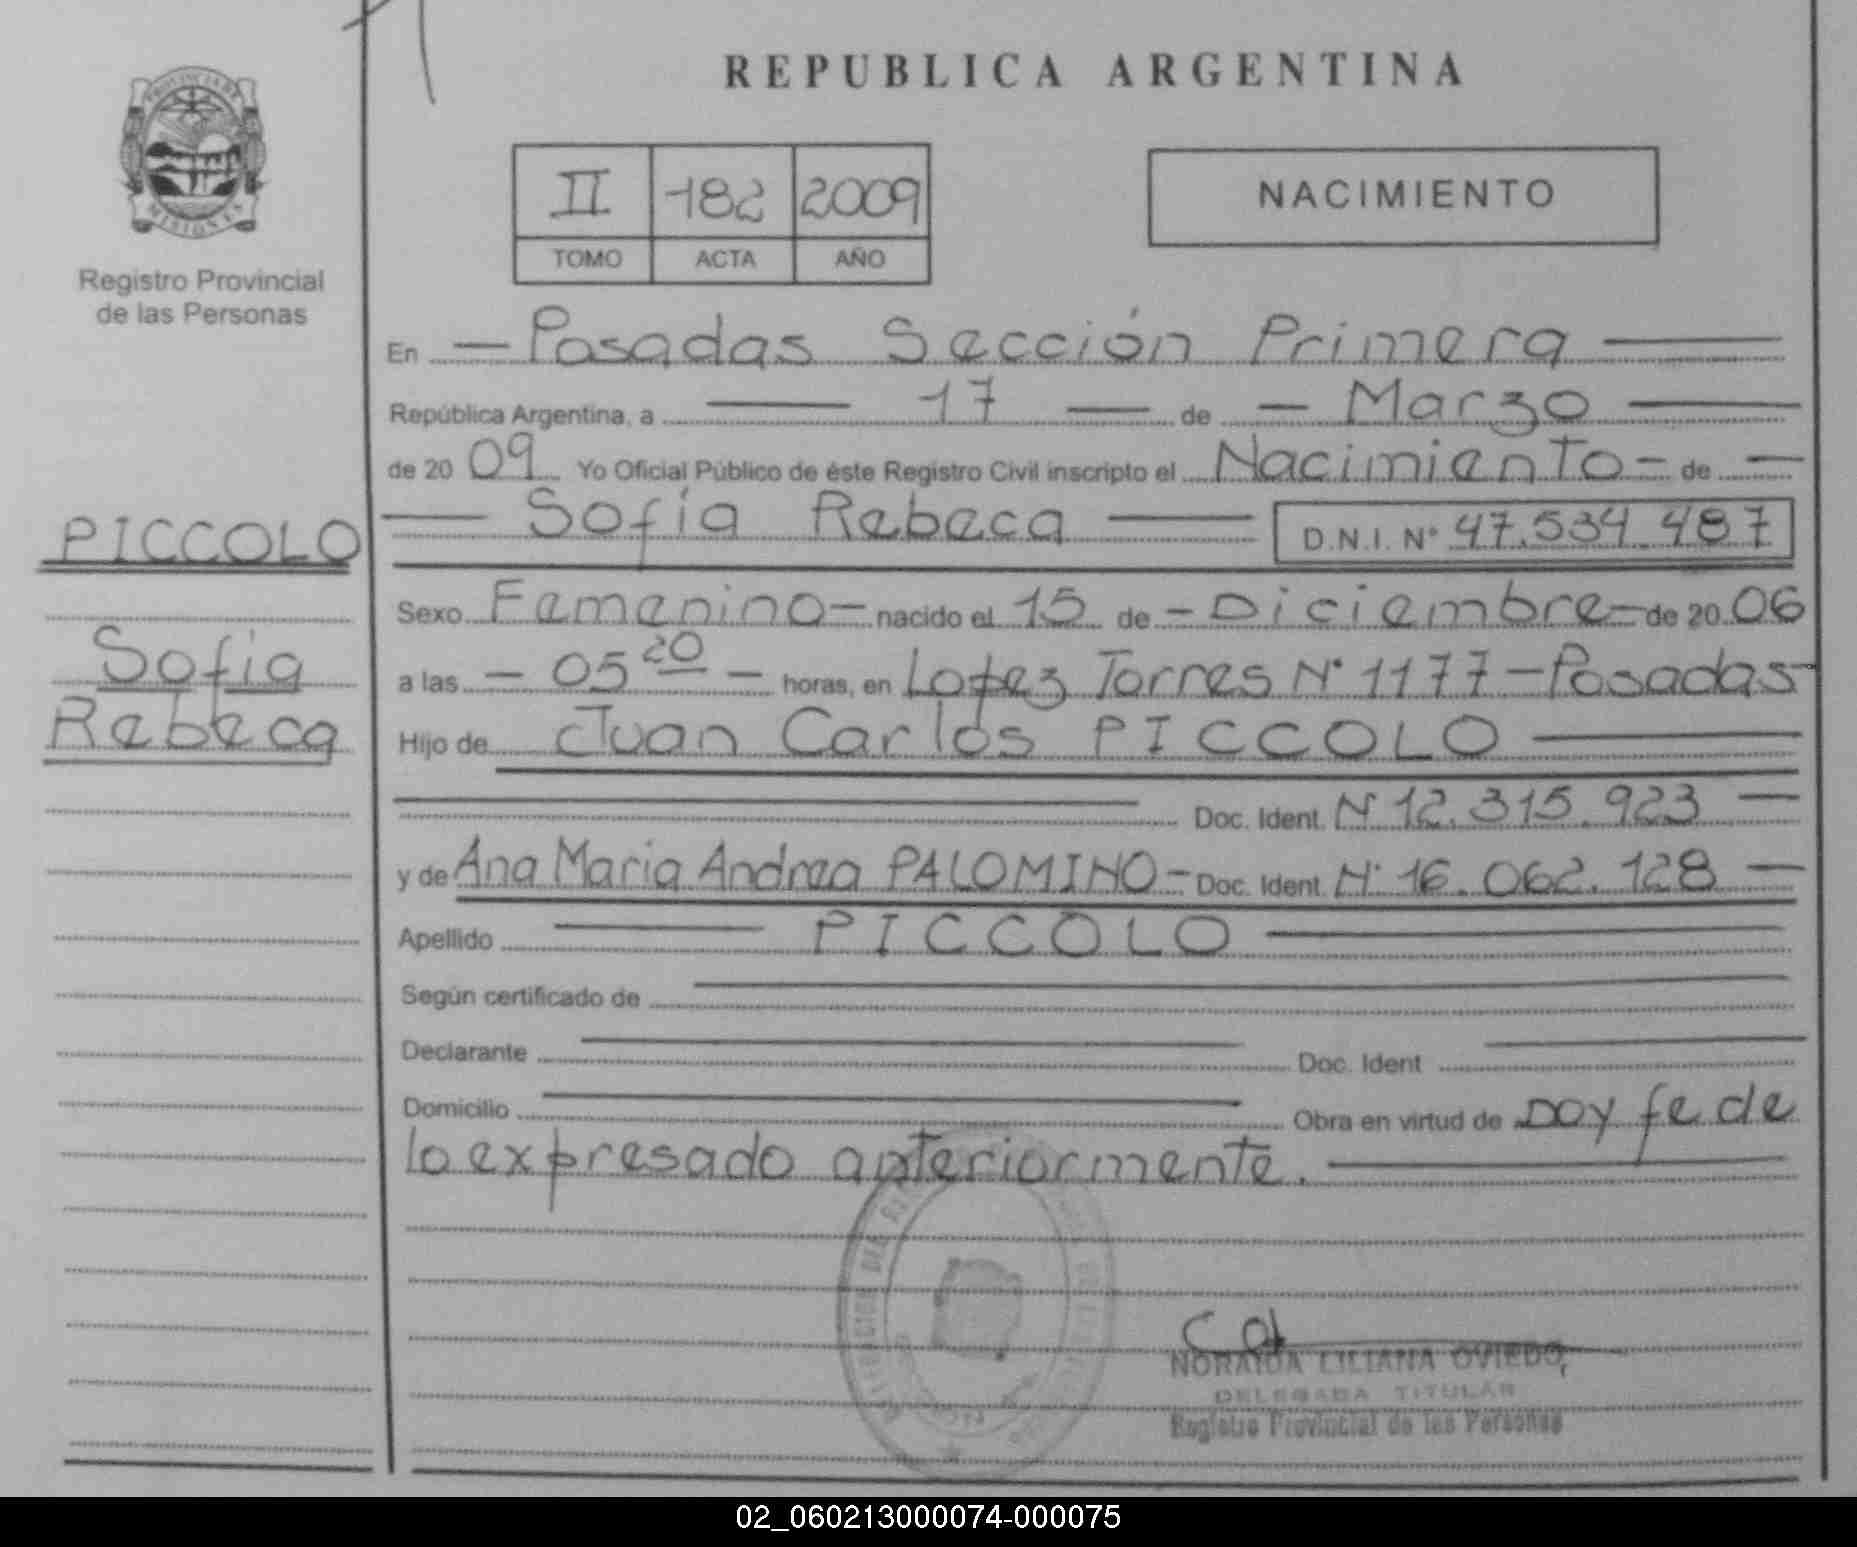 REPUBLICA ARGENTINA
PROVINCIA DE
MISIONES
Registro Provincial
de las Personas
II 182 2009
TOMO ACTA AÑO
NACIMIENTO
En — Posadas Sección Primera —
República Argentina, a — 17 — de — Marzo —
de 20 09 Yo Oficial Público de éste Registro Civil inscripto el Nacimiento - de —
— Sofía Rebeca — D.N.I. N° 47.534.487
PICCOLO
Sofia
Rebeca
Sexo Femenino — nacido el 15 de - Diciembre - de 20 06
a las — 05 20 — horas, en Lopez Torres N° 1177 - Posadas
Hijo de Juan Carlos PICCOLO —
Doc. Ident. N° 12.315.923 —
y de Ana Maria Andrea PALOMINO - Doc. Ident. N° 16.062.128 —
Apellido — PICCOLO —
Según certificado de —
Declarante — Doc. Ident —
Domicilio — Obra en virtud de Doy fe de
lo expresado anteriormente. —
NORAIDA LILIANA OVIEDO
DELEGADA TITULAR
Registro Provincial de las Personas
02_060213000074-000075